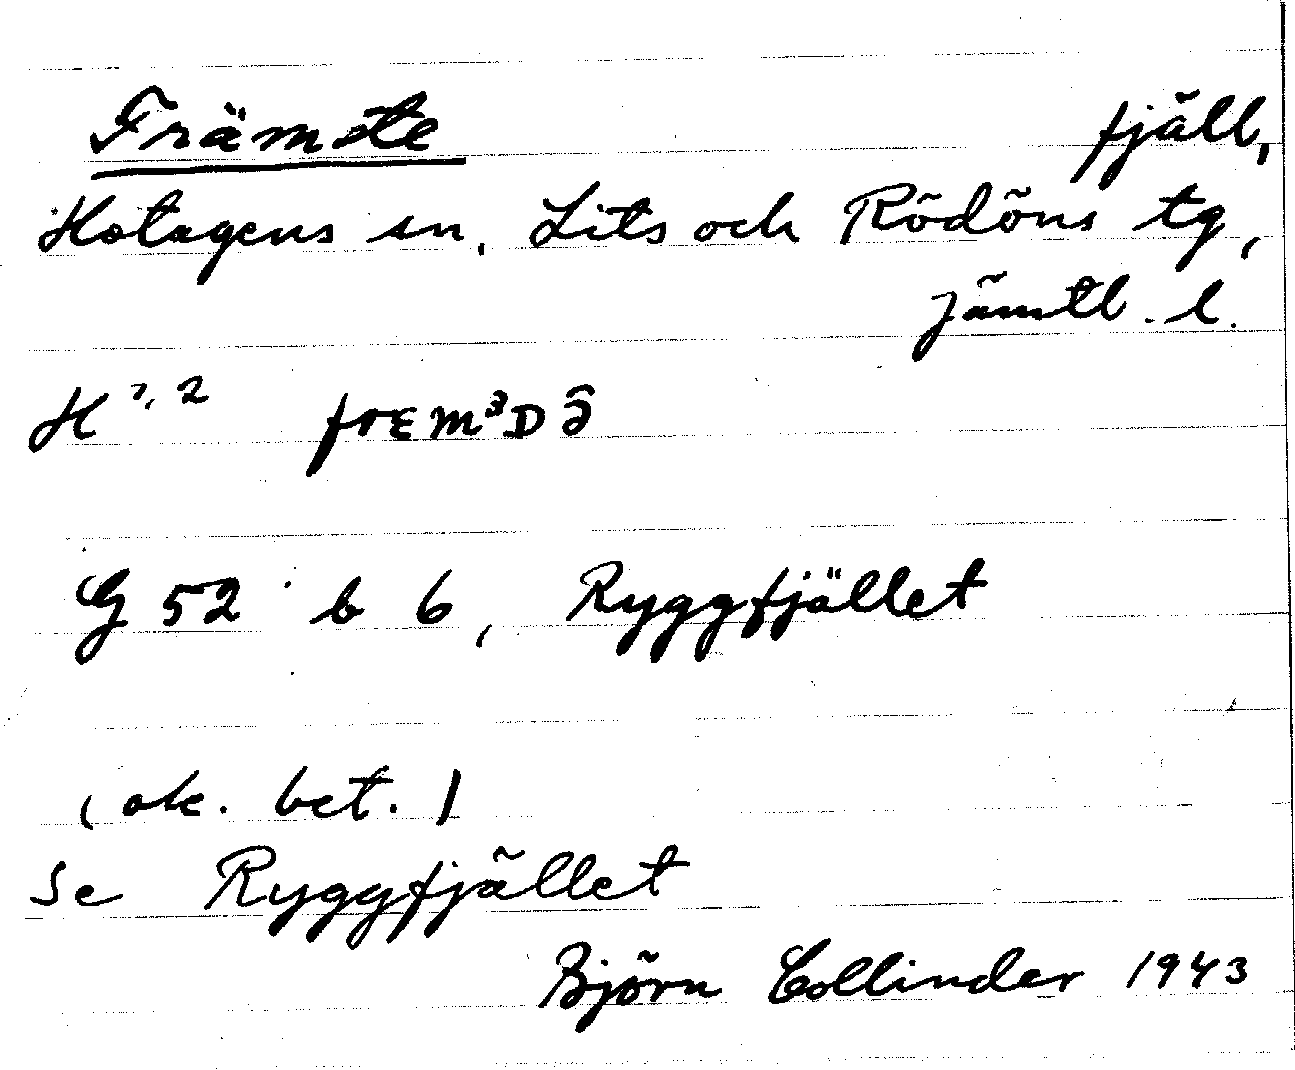 Främste fjäll,
Hotagens sn, Lits och Rödöns tg,
Jämtl. l.
H 7, 2 frɛm³Də̂
G 52 b 6, Ryggfjället
(ok. bet.)
Se Ryggfjället
Björn Collinder 1943